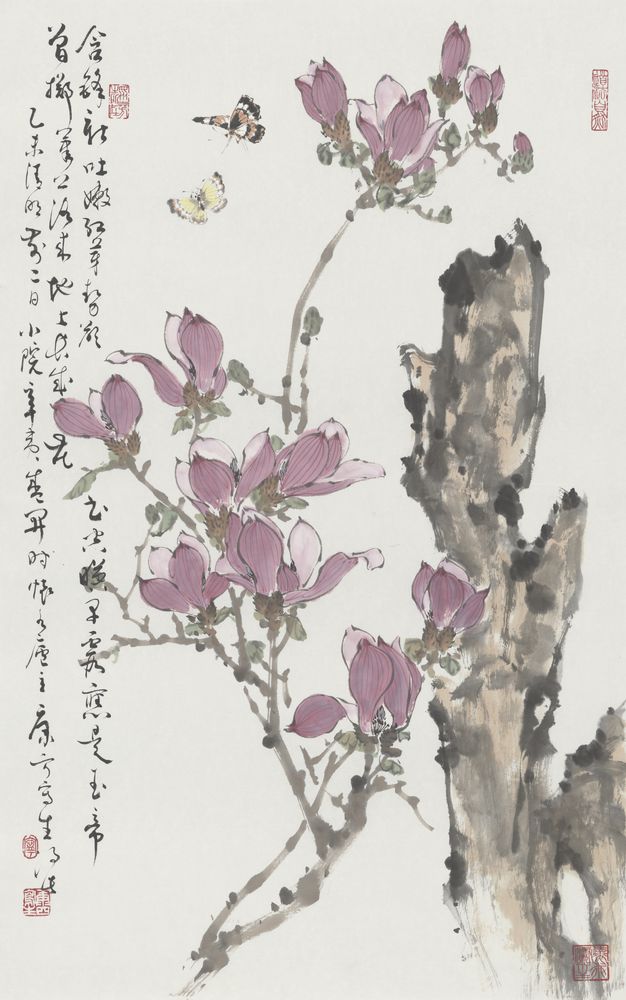 含锋新吐嫩红芽势欲书空映早霞应是玉帝
曾掷笔落来地上长成花
乙未清明前二日小院辛夷开时庐主康宁写生